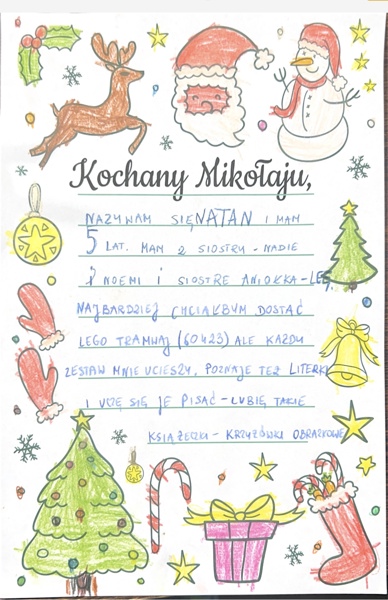 Kochany Mikołaju,
NAZYWAM SIĘ NATAN I MAM
5 LAT. MAM 2 SIOSTRY - NADIE
I NOEMI I SIOSTRE ANIOŁKA - LEĘ
NAJBARDZIEJ CHCIAŁBYM DOSTAĆ
LEGO TRAMWAJ (60423) ALE KAŻDY
ZESTAW MNIE UCIESZY, POZNAJE TEŻ LITERKI
I UCZĘ SIĘ JE PISAĆ - LUBIĘ TAKIE
KSIĄŻECZKI - KRZYŻÓWKI OBRAZKOWE